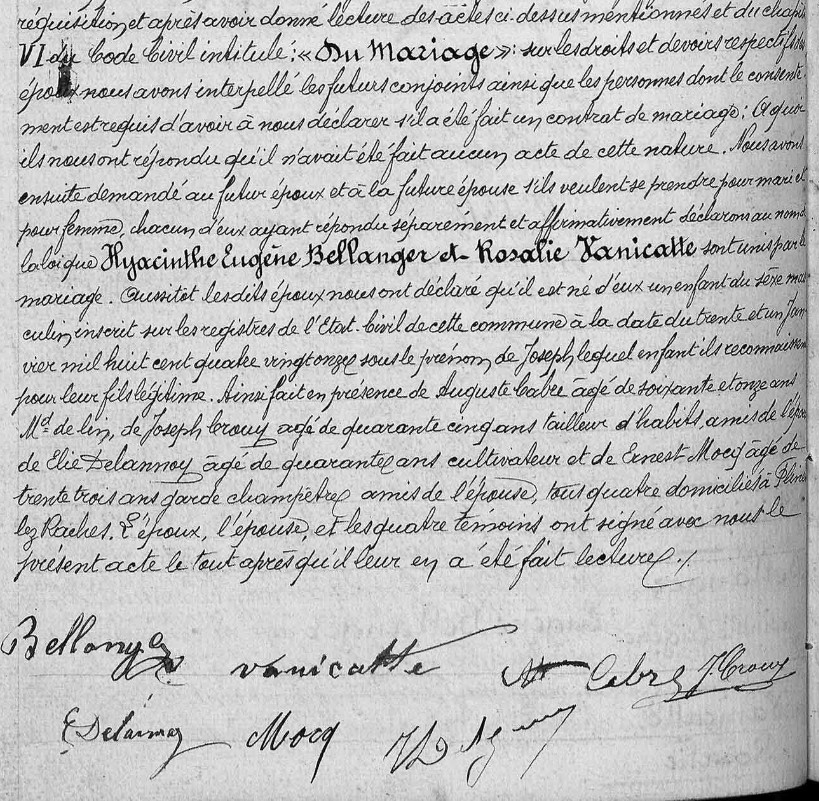 réquisition et après avoir donné lecture des actes ci-dessus mentionnés et du chapitre
VI du Code Civil intitulé : « Du Mariage » : sur les droits et devoirs respectifs des
époux nous avons interpellé les futurs conjoints ainsi que les personnes dont le consente
ment est requis d'avoir à nous déclarer s'il a été fait un contrat de mariage ; A quoi
ils nous ont répondu qu'il n'avait été fait aucun acte de cette nature. Nous avons
ensuite demandé au futur époux et à la future épouse s'ils veulent se prendre pour mari et
pour femme, chacun d'eux ayant répondu séparément et affirmativement déclarons au nom de
la loi que Hyacinthe Eugène Bellanger et Rosalie Vanicatte sont unis par le
mariage. Aussitot les dits époux nous ont déclaré qu'il est né d'eux un enfant du sèxe mas
culin, inscrit sur les registres de l'Etat-Civil de cette commune à la date du trente et un Jan
vier mil huit cent quatre vingt onze sous le prénom de Joseph lequel enfant ils reconnaissent
pour leur fils légitime. Ainsi fait en présence de Auguste Cabre âgé de soixante et onze ans
Md de lin, de Joseph Crouy agé de quarante cinq ans tailleur d'habits, amis de l'époux
de Elie Delannoy âgé de quarante ans cultivateur et de Ernest Mocq âgé de
trente trois ans garde champêtre amis de l'épouse, tous quatre domiciliés à
lez Raches. L'époux, l'épouse, et les quatre témoins ont signé avec nous le
présent acte le tout après qu'il leur en a été fait lecture ./.
Bellanger vanicatte Cabre J. Crouy
E Delannoy Mocq